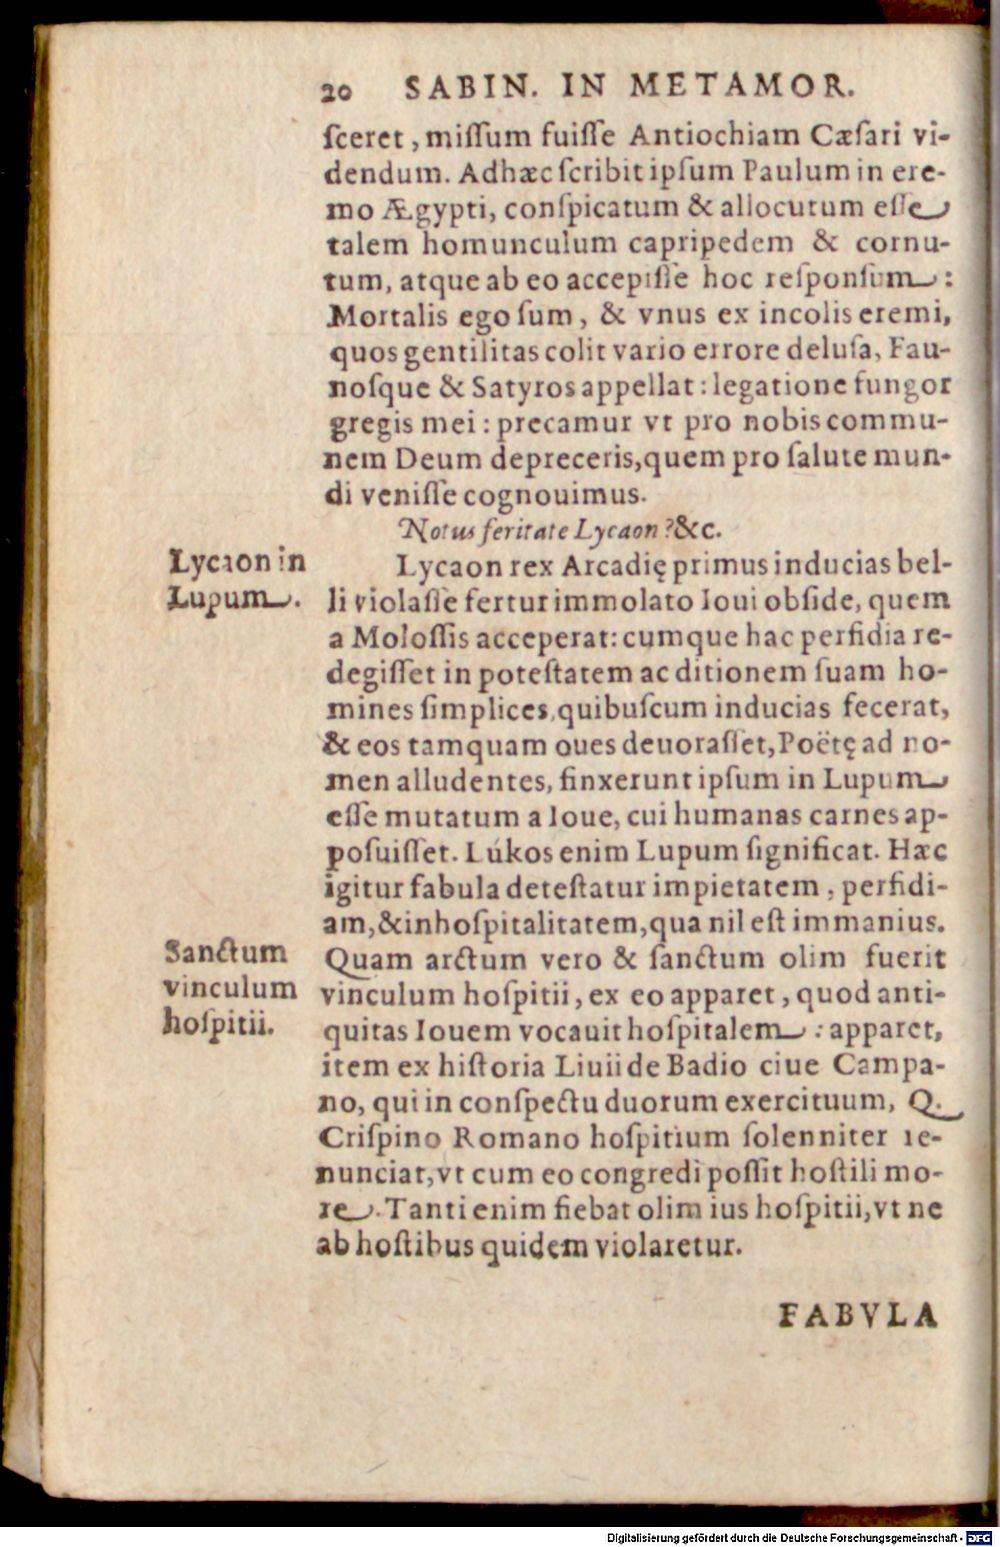 20 SABIN. IN METAMOR.
ſceret, miſſum fuiſſe Antiochiam Cæſari vi-
dendum. Adhæc ſcribit ipſum Paulum in ere-
mo Ægypti, conſpicatum & allocutum eſſe
talem homunculum capripedem & cornu-
tum, atque ab eo accepiſſe hoc reſponſum:
Mortalis ego ſum, & vnus ex incolis eremi,
quos gentilitas colit vario errore deluſa, Fau-
noſque & Satyros appellat: legatione fungor
gregis mei: precamur vt pro nobis commu-
nem Deum depreceris, quem pro ſalute mun-
di veniſſe cognouimus.
Notus feritate Lycaon? &c.
Lycaon in
Lupum.
Lycaon rex Arcadię primus inducias bel-
li violaſſe fertur immolato Ioui obſide, quem
a Moloſſis acceperat: cumque hac perfidia re-
degiſſet in poteſtatem ac ditionem ſuam ho-
mines ſimplices, quibuſcum inducias fecerat,
& eos tamquam oues deuoraſſet, Poëtę ad no-
men alludentes, finxerunt ipſum in Lupum
eſſe mutatum a Ioue, cui humanas carnes ap-
poſuiſſet. Lúkos enim Lupum ſignificat. Hæc
igitur fabula deteſtatur impietatem, perfidi-
am, & inhoſpitalitatem, qua nil eſt immanius.
Sanctum
vinculum
hoſpitii.
Quam arctum vero & ſanctum olim fuerit
vinculum hoſpitii, ex eo apparet, quod anti-
quitas Iouem vocauit hoſpitalem: apparet,
item ex hiſtoria Liuii de Badio ciue Campa-
no, qui in conſpectu duorum exercituum, Q.
Criſpino Romano hoſpitium ſolenniter re-
nunciat, vt cum eo congredi poſſit hoſtili mo-
re. Tanti enim fiebat olim ius hoſpitii, vt ne
ab hoſtibus quidem violaretur.
FABVLA
Digitalisierung gefördert durch die Deutsche Forschungsgemeinschaft - DFG